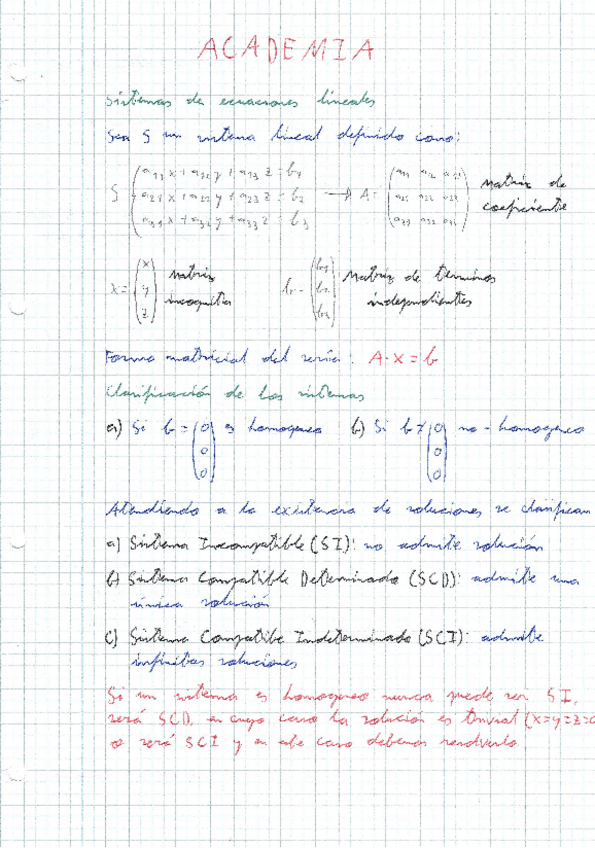 ACADEMIA
Sistemas de ecuaciones lineales
Sea S un sistema lineal definido como:
S { a11 x + a12 y + a13 z = b1 → A = ( a11 a12 a13 Matriz de
a21 x + a22 y + a23 z = b2 a21 a22 a23 coeficiente
a31 x + a32 y + a33 z = b3 a31 a32 a33 )
x = ( x y z ) Matriz incognitas b = ( b1 b2 b3 ) Matriz de terminos independientes
Forma matricial del : A·x = b
Clasificación de los sistemas
a) Si b = ( 0 0 0 ) es homogeneo b) Si b ≠ ( 0 0 0 ) no - homogeneo
Atendiendo a la existencia de soluciones se clasifican
a) Sistema Incompatible (SI): no admite solución
b) Sistema Compatible Determinado (SCD): admite una
única solución
c) Sistema Compatible Indeterminado (SCI): admite
infinitas soluciones
Si un sistema es homogeneo nunca puede ser SI,
será SCD, en cuyo caso la solución es trivial (x=y=z=0
o será SCI y en ese caso debemos resolverlo.